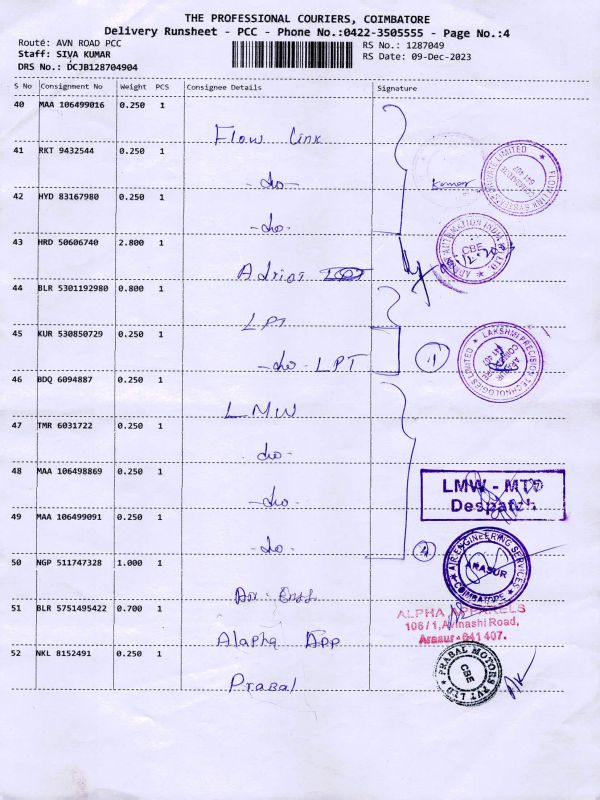 THE PROFESSIONAL COURIERS, COIMBATORE
Delivery Runsheet - PCC - Phone No.:0422-3505555 - Page No.:4
Route: AVN ROAD PCC
RS No.: 1287049
Staff: SIVA KUMAR
RS Date: 09-Dec-2023
DRS No.: DCJB128704904
S No Consignment No Weight PCS Consignee Details Signature
40 MAA 106499016 0.250 1
Flow Link
41 RKT 9432544 0.250 1
-do-
Kumar
FLOW LINK SYSTEMS PRIVATE LIMITED
42 HYD 83167980 0.250 1
-do-
43 HRD 50606740 2.800 1
CBE
44 BLR 5301192980 0.800 1
LPT
45 KUR 530850729 0.250 1
-do- LPT
LAKSHMI PRECISION TECHNOLOGIES LIMITED
46 BDQ 6094887 0.250 1
LMW
47 TMR 6031722 0.250 1
-do-
48 MAA 106498869 0.250 1
-do-
LMW - MTD
Despatch
49 MAA 106499091 0.250 1
-do-
50 NGP 511747328 1.000 1
AIR ENGINEERING SERVICES
ARASUR
COIMBATORE
51 BLR 5751495422 0.700 1
Alapha App
ALPHA APPARELS
106/1,Avinashi Road,
Arasur-641 407.
52 NKL 8152491 0.250 1
Prabal
PRABAL MOTORS PVT LTD
CBE